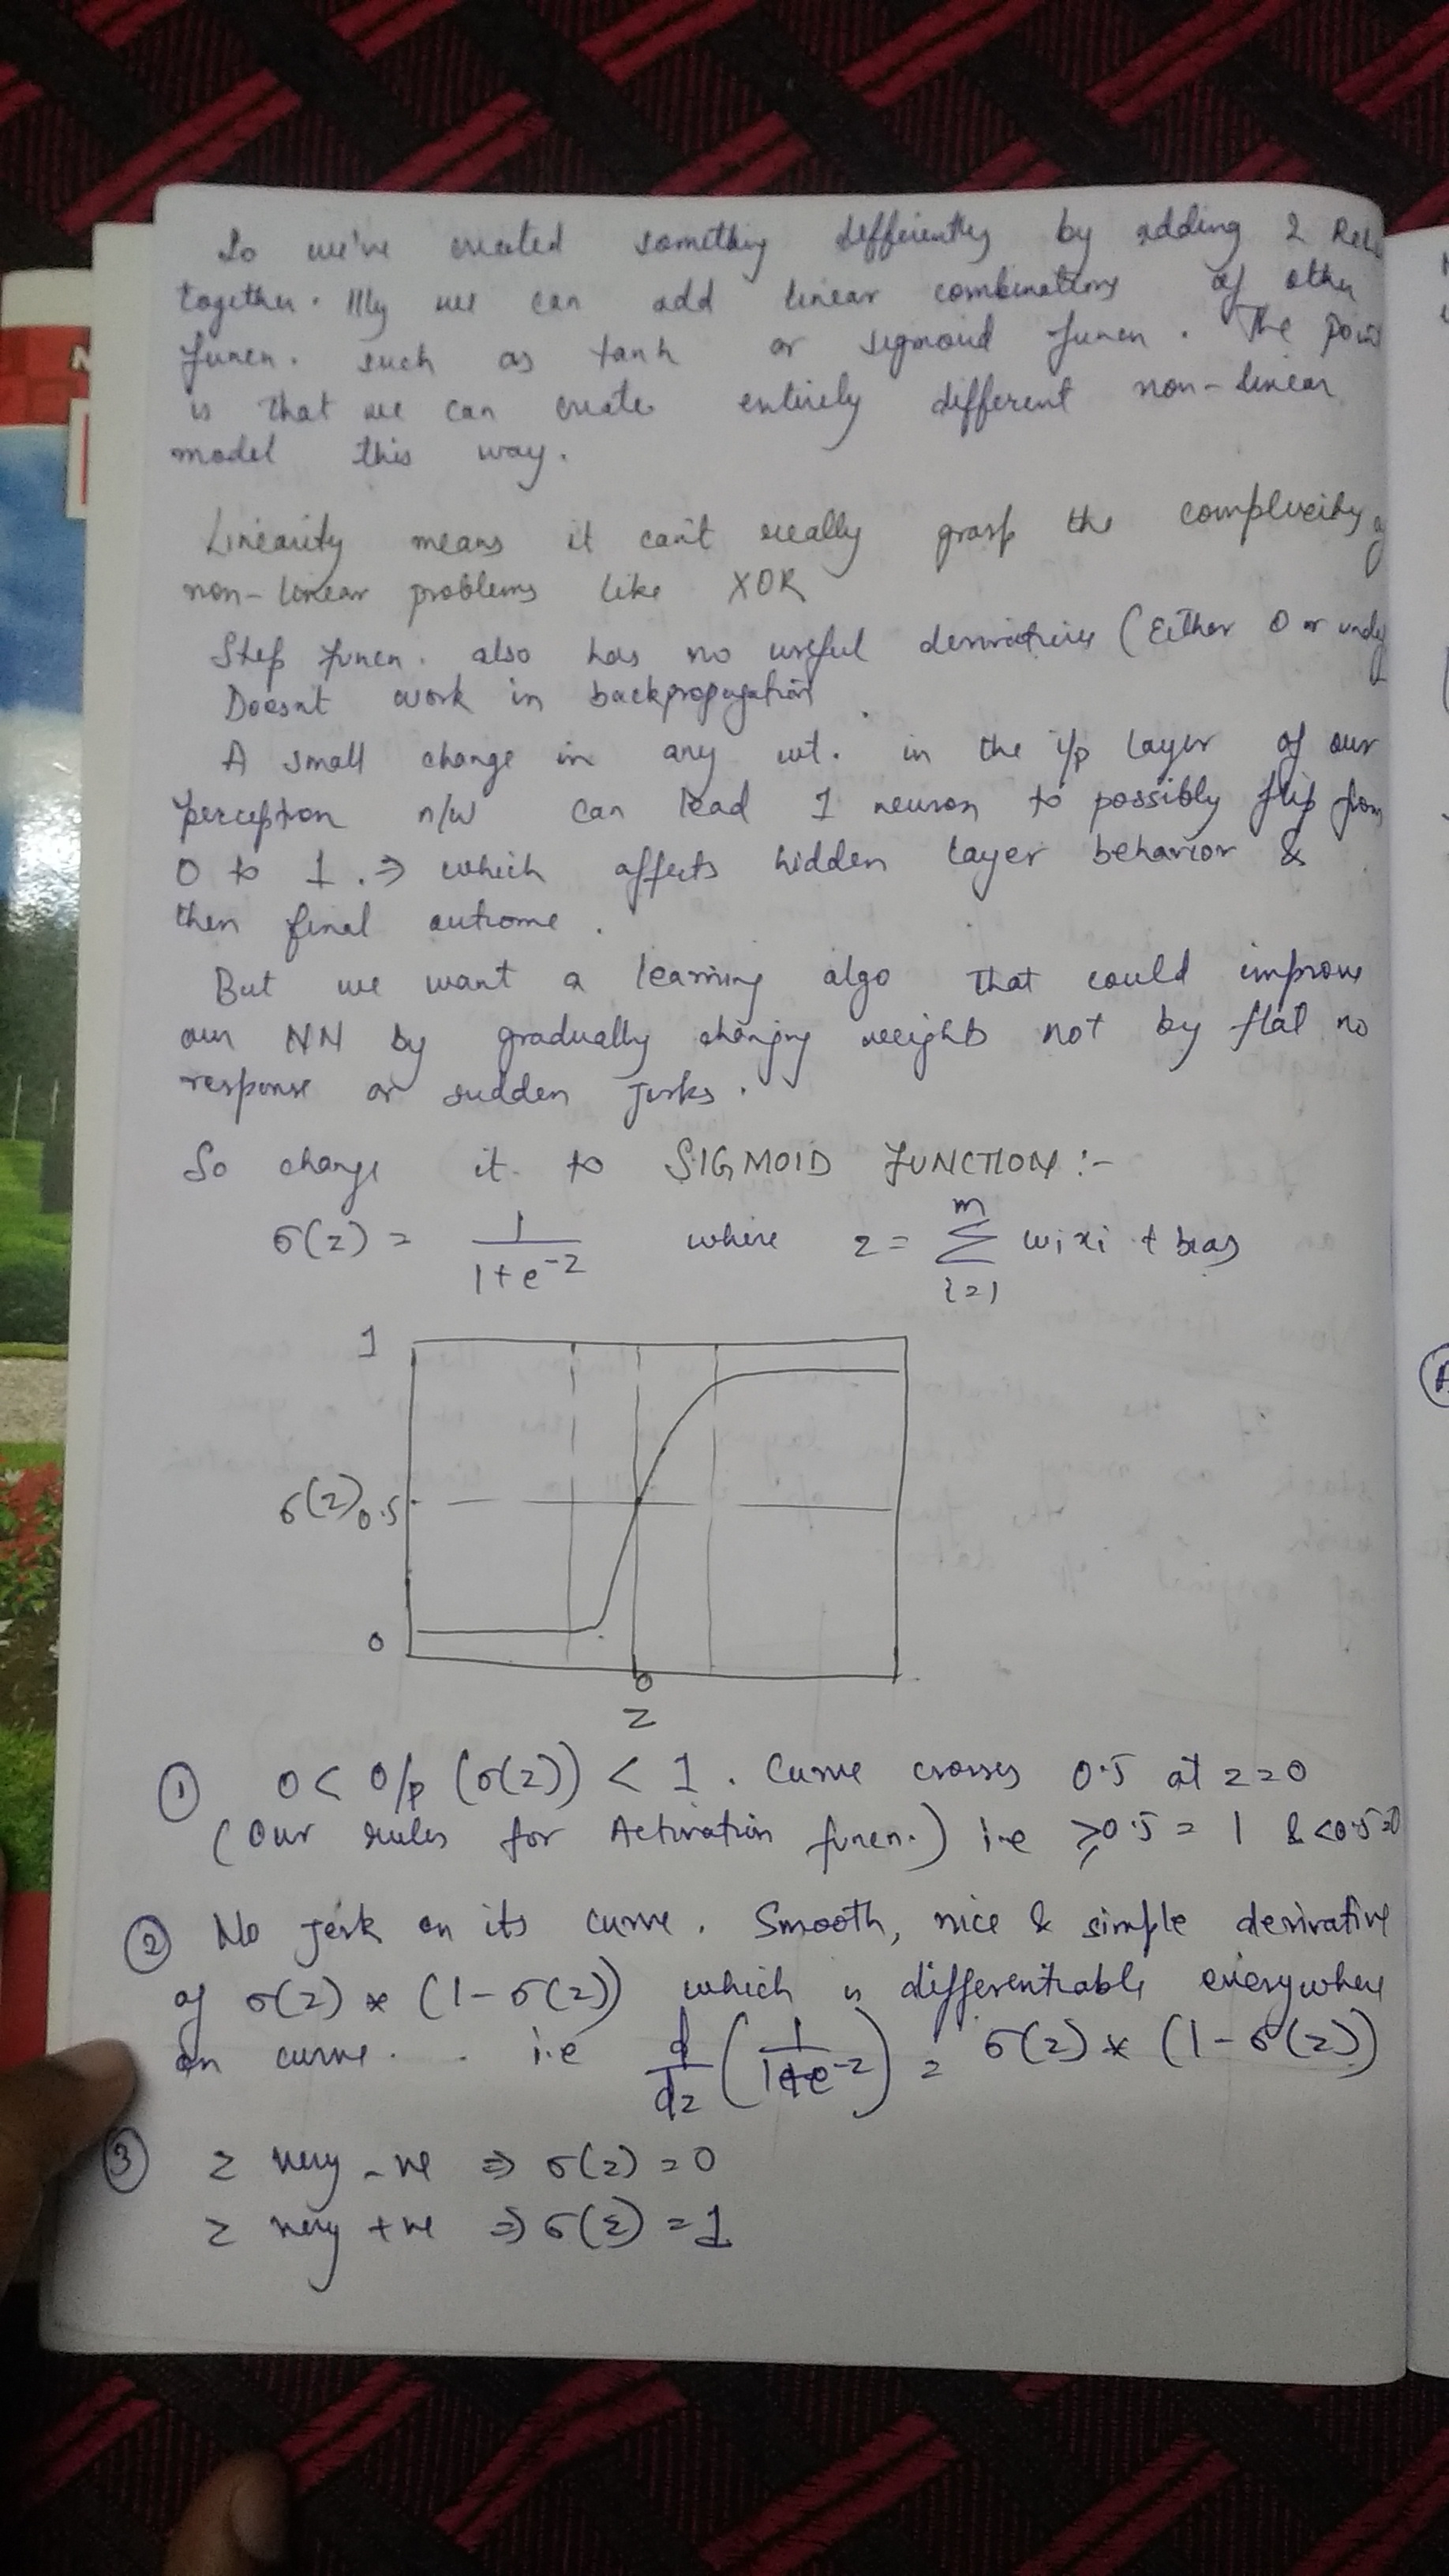 So we've created something differently by adding 2 Relu
together. Illy we can add linear combinations of other
funcn. such as tanh or sigmoid funcn. The point
is that we can create entirely different non-linear
model this way.
Linearity means it can't really grasp the complexity of
non-linear problems like XOR
Step funcn. also has no useful derivatives (Either 0 or undef
Doesnt work in backpropagation
A small change in any wt. in the i/p layer of our
perceptron n/w can lead 1 neuron to possibly flip from
0 to 1. ⇒ which affects hidden layer behavior &
then final outcome.
But we want a learning algo that could improve
our NN by gradually changing weights not by flat no
response or sudden jerks.
So change it to SIGMOID FUNCTION :-
σ(z) = 1/(1+e^-z) where z = Σ_{i=1}^{m} wixi + bias
1
σ(z) 0.5
0
0
z
① 0 < O/p (σ(z)) < 1. Curve crosses 0.5 at z=0
(Our rules for Activation funcn.) i.e ≥0.5 = 1 & <0.5=0
② No Jerk on its curve. Smooth, nice & simple derivative
of σ(z) * (1-σ(z)) which is differentiable everywhere
on curve. i.e d/dz (1/(1+e^-z)) = σ(z) * (1-σ(z))
③ z very -ve ⇒ σ(z) = 0
z very +ve ⇒ σ(z) = 1